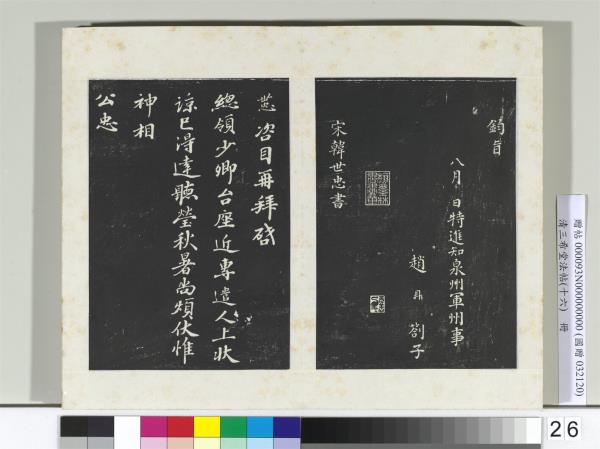 鈞旨
八月 日特進知泉州軍州事
趙鼎劄子
宋韓世忠書
世忠咨目再拜啓
總領少卿台座近專遣人上狀
諒已得達聽瑩秋暑尚煩伏惟
神相
公忠
贈帖 000093N000000000 (國贈 032120)
清三希堂法帖(十六) 冊
26